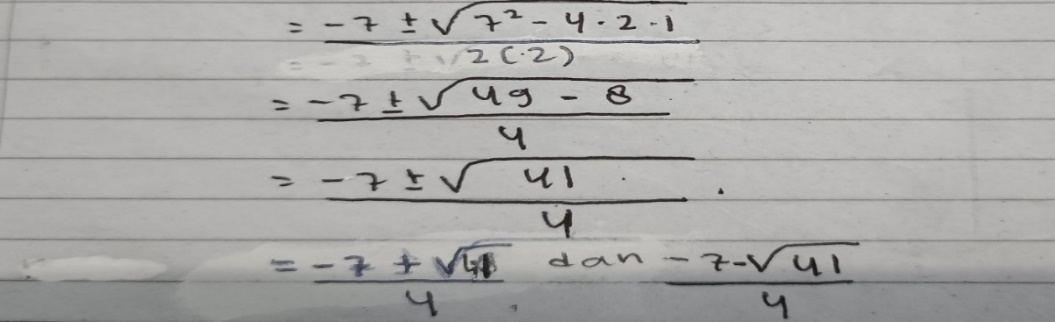 = -7 ± √7² - 4 · 2 · 1
2 (·2)
= -7 ± √49 - 8
4
= -7 ± √41 .
4
= -7 + √41 dan -7 - √41
4 4